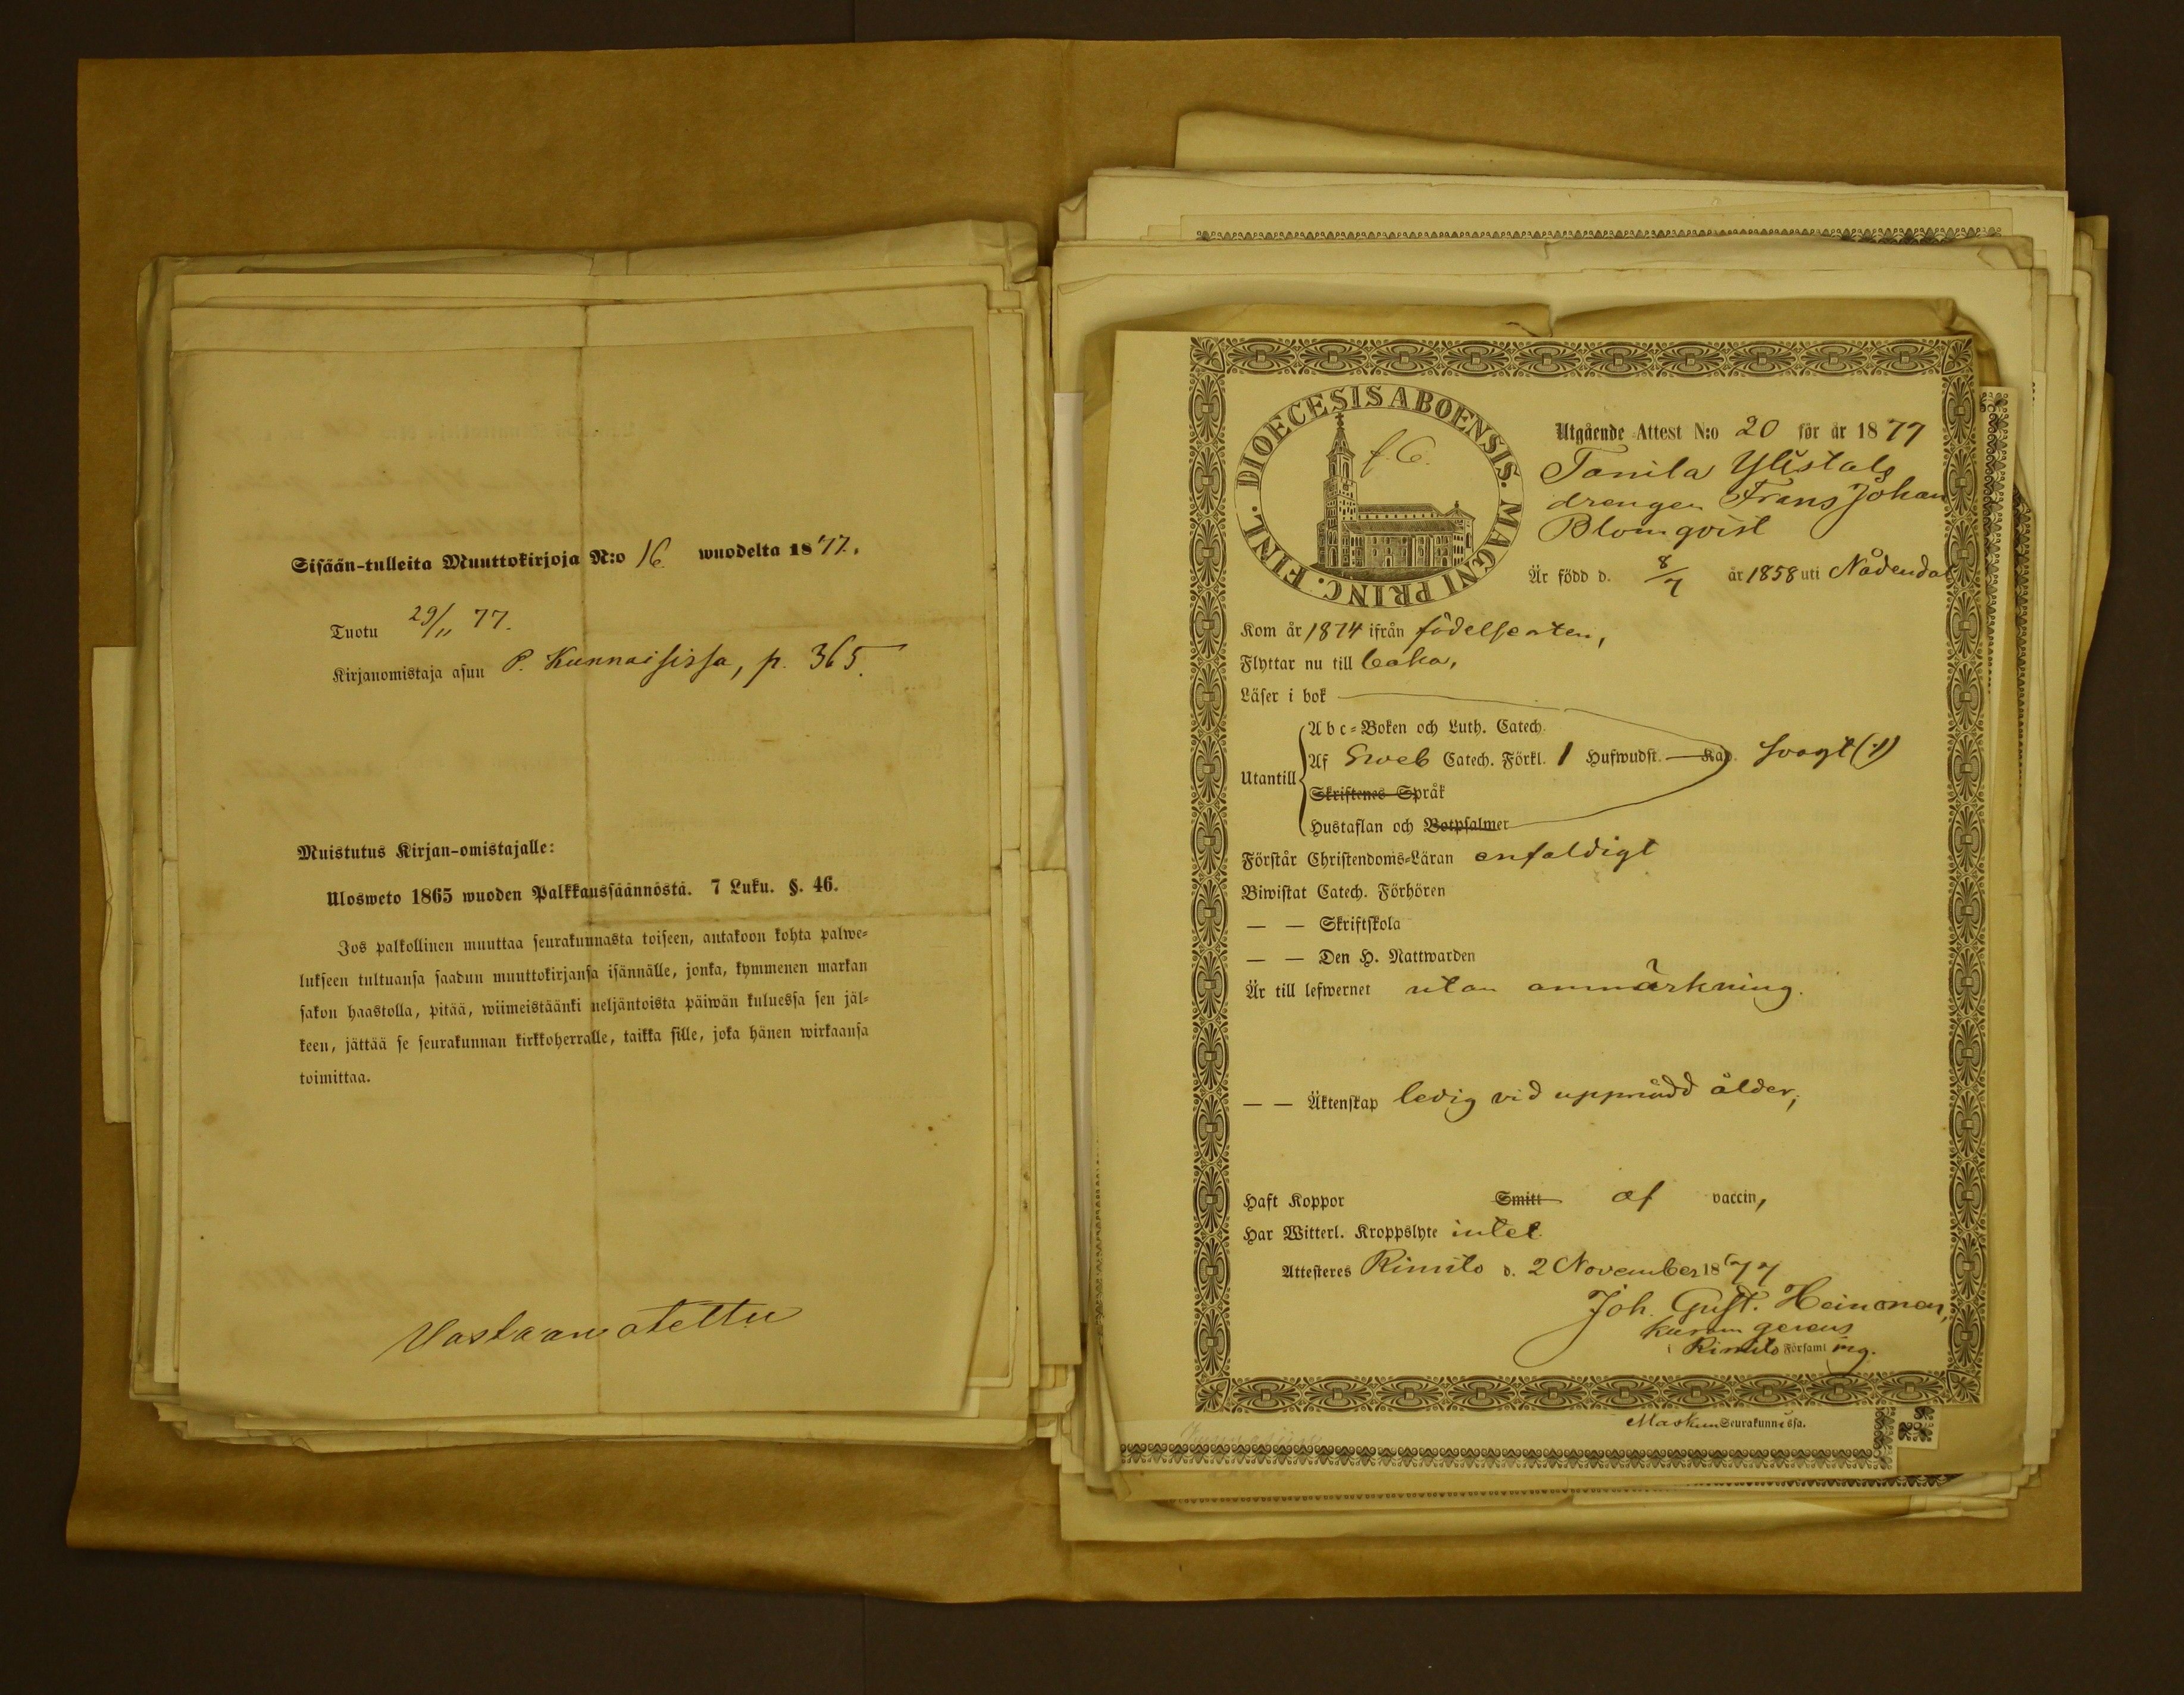 Sisään-tulleita Muuttokirjoja N:o 16 wuodelta 1877.
Tuotu 29/11 77.
Kirjanomistaja asuu P. Kunnaisissa, p. 365.
Muistutus Kirjan-omistajalle:
Ulosweto 1865 wuoden Palkkaussäännöstä. 7 Luku. §. 46.
Jos palkollinen muuttaa seurakunnasta toiseen, antakoon kohta palwe-
lukseen tultuansa saadun muuttokirjansa isännälle, jonka, kymmenen markan
sakon haastolla, pitää, wiimeistäänki neljäntoista päiwän kuluessa sen jäl-
keen, jättää se seurakunnan kirkkoherralle, taikka sille, joka hänen wirkaansa
toimittaa.
Vastaanotettu
DIOECESIS ABOENSIS. MAGNI PRINC. FINL.
f. 6.
Utgående Attest N:o 20 för år 1877
Tanila Ylistalo
drengen Frans Johan
Blomqvist
Är född d. 8/7 år 1858 uti Nådendal
Kom år 1874 ifrån födelseorten,
Flyttar nu till
Läser i bok
Abc-Boken och Luth. Catech.
Utantill Af Sweb Catech. Förkl. 1 Hufwudst. Kap. svagt (1)
Skriftenes Språk
Hustaflan och Botpsalmer
Förstår Christendoms-Läran enfaldigt
Biwistat Catech. Förhören
— — Skriftskola
— — Den H. Nattwarden
Är till lefwernet utan anmärkning.
— — Äktenskap ledig vid uppnådd ålder,
Haft Koppor Smitt af vaccin,
Har Witterl. Kroppslyte intet.
Attesteres Rimito d. 2 November 1877
Joh. Gust. Heinonen,
kuram gerens
i Rimito Församling.
Maskun Seurakunnissa.